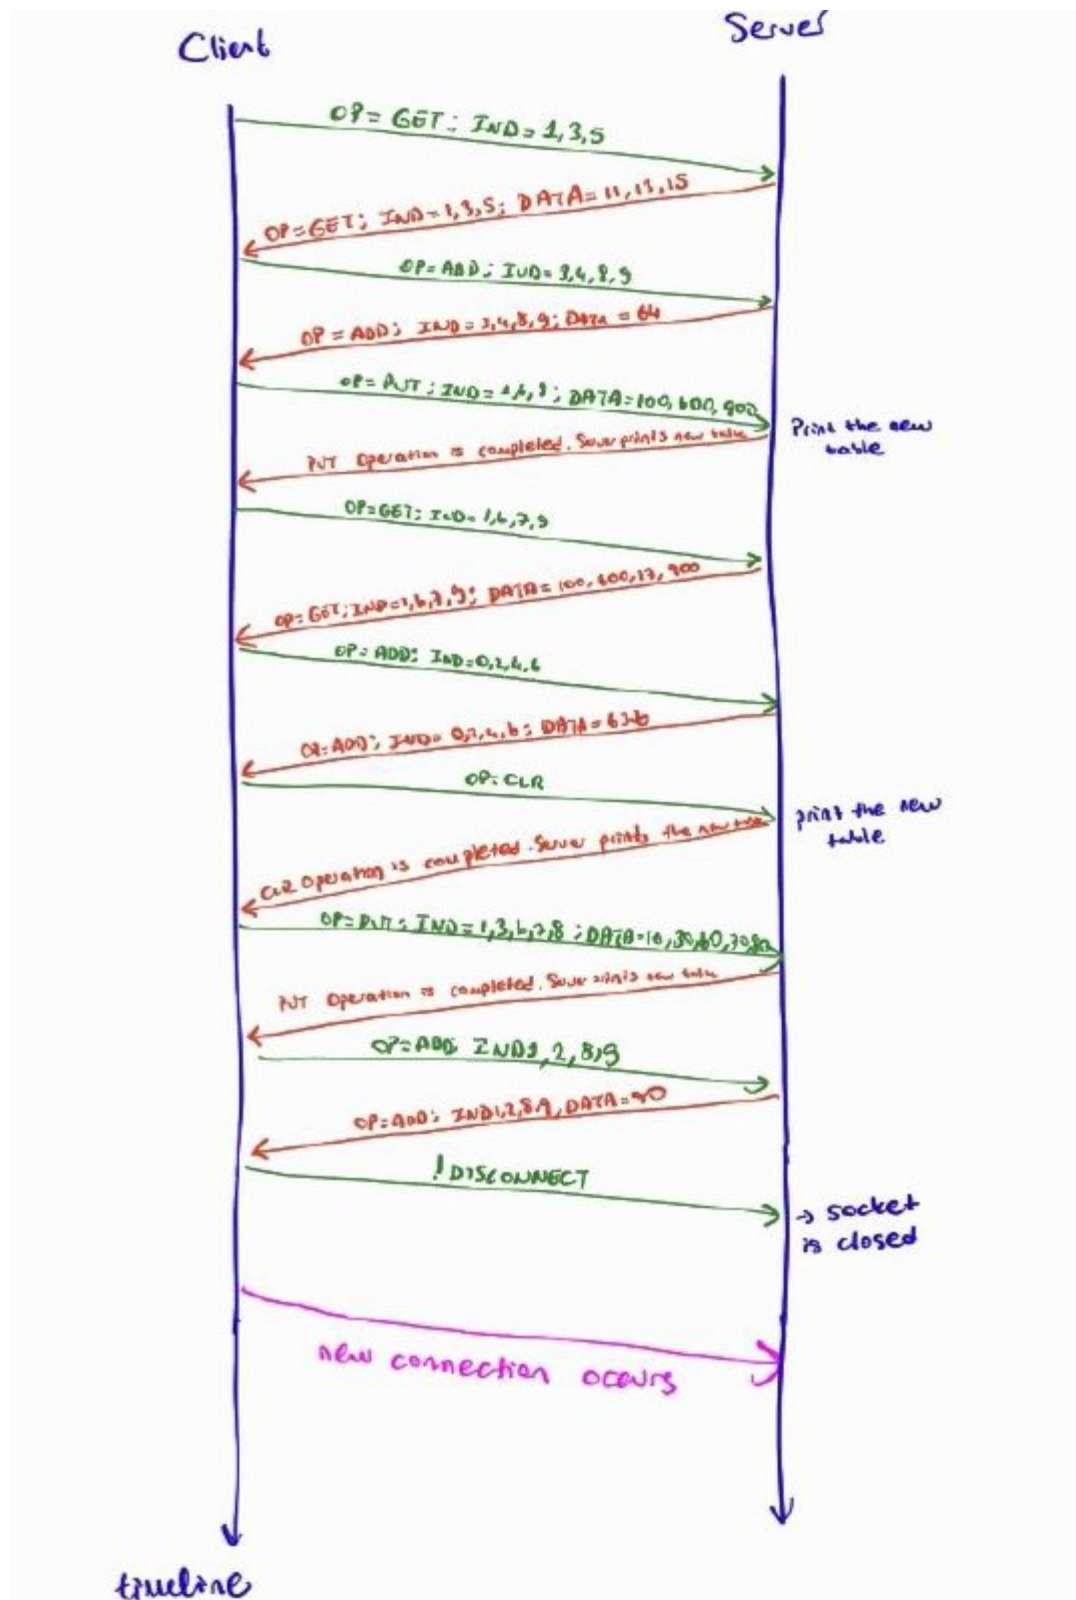 Client
Server
OP= GET; IND= 1,3,5
OP=GET; IND=1,3,5; DATA= 11,13,15
OP=ADD; IND= 3,4,8,9
OP = ADD; IND = 3,4,8,9; DATA = 64
OP= PUT; IND= 1,6,9; DATA=100,600,900
Print the new
table
PUT Operation is completed. Server prints new table
OP=GET; IND= 1,6,7,9
OP=GET; IND=1,6,7,9; DATA= 100,600,17,900
OP= ADD; IND=0,2,4,6
OP=ADD; IND= 0,2,4,6; DATA=636
OP=CLR
print the new
table
CLR Operation is completed. Server prints the new table
OP=PUT; IND=1,3,6,7,8; DATA=10,30,60,70,80
PUT Operation is completed. Server prints new table
OP=ADD; IND1,2,8,9
OP=ADD; IND1,2,8,9, DATA=90
!DISCONNECT
→ socket
is closed
new connection occurs
timeline